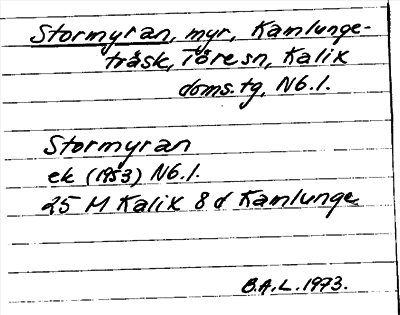 Stormyran, myr, Kamlunge-
träsk, Töre sn, Kalix
doms.tg, Nb.l.
Stormyran
ek (1953) Nb.l.
25 M Kalix 8 d Kamlunge
B.A.L. 1973.